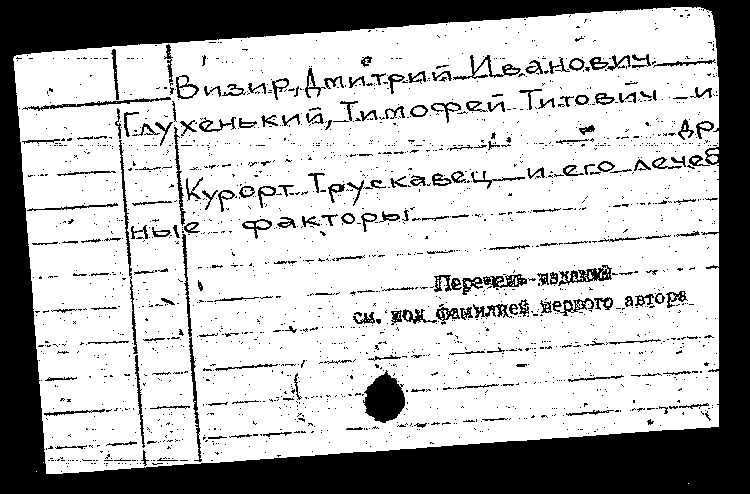 Визир, Дмитрий Иванович
Глухенький, Тимофей Титович и
др.
Курорт Трускавец и его лечеб
ные факторы
Перечень изданий
см. под фамилией первого автора